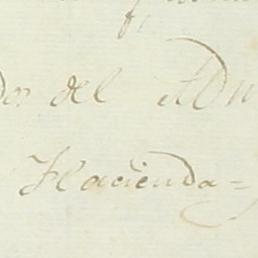 dor del Adm
Hacienda=